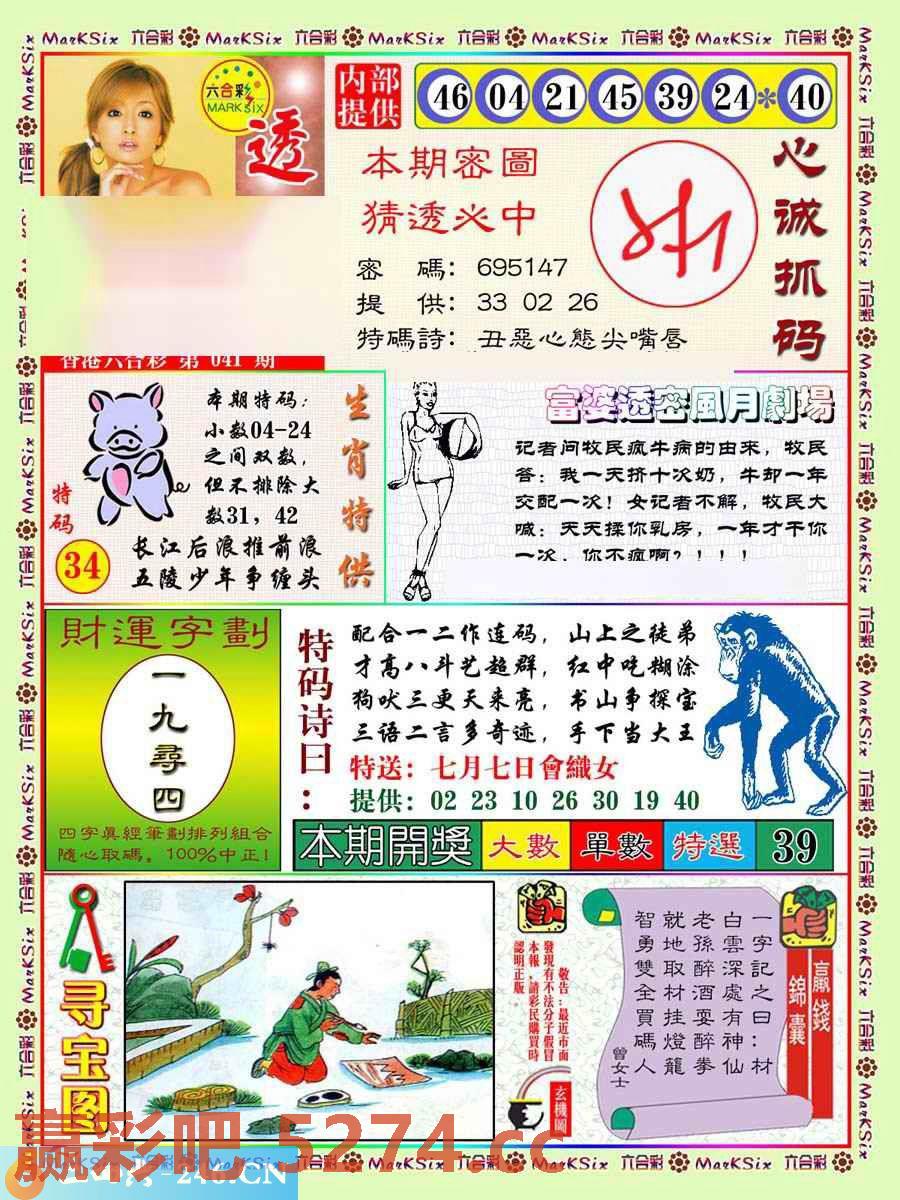 MarKSix 六合彩 MarKSix 六合彩 MarKSix 六合彩 MarKSix 六合彩 MarKSix 六合彩
六合彩
MARK SIX
透
内部
提供
46 04 21 45 39 24 * 40
本期密圖
猜透必中
密 碼: 695147
提 供: 33 02 26
特碼詩: 丑惡心態尖嘴唇
心诚抓码
香港六合彩 第 041 期
本期特码:
小数04-24
之间双数,
但不排除大
数31, 42
长江后浪推前浪
五陵少年争缠头
特码
34
生肖特供
富婆透密風月劇場
记者问牧民疯牛病的由来, 牧民
答: 我一天挤十次奶, 牛却一年
交配一次! 女记者不解, 牧民大
喊: 天天揉你乳房, 一年才干你
一次, 你不疯啊?!!!
財運字劃
一九尋四
四字真經筆劃排列組合
隨心取碼。100%中正!
特码诗曰:
配合一二作连码, 山上之徒弟
才高八斗艺超群, 红中吃糊涂
狗吠三更天来亮, 书山争探宝
三语二言多奇迹, 手下当大王
特送: 七月七日會織女
提供: 02 23 10 26 30 19 40
本期開獎 大數 單數 特選 39
寻宝图
敬告:最近市面
發現有不法分子假冒
本報,請彩民購買時
認明正版。
玄機圖
一字記之曰:材
白雲深處有神仙
老孫醉酒耍醉拳
就地取材挂燈籠
智勇雙全買碼人
曾女士
贏錢
錦囊
赢彩吧 5274.cc
MarKSix 六合彩 MarKSix 六合彩 MarKSix 六合彩